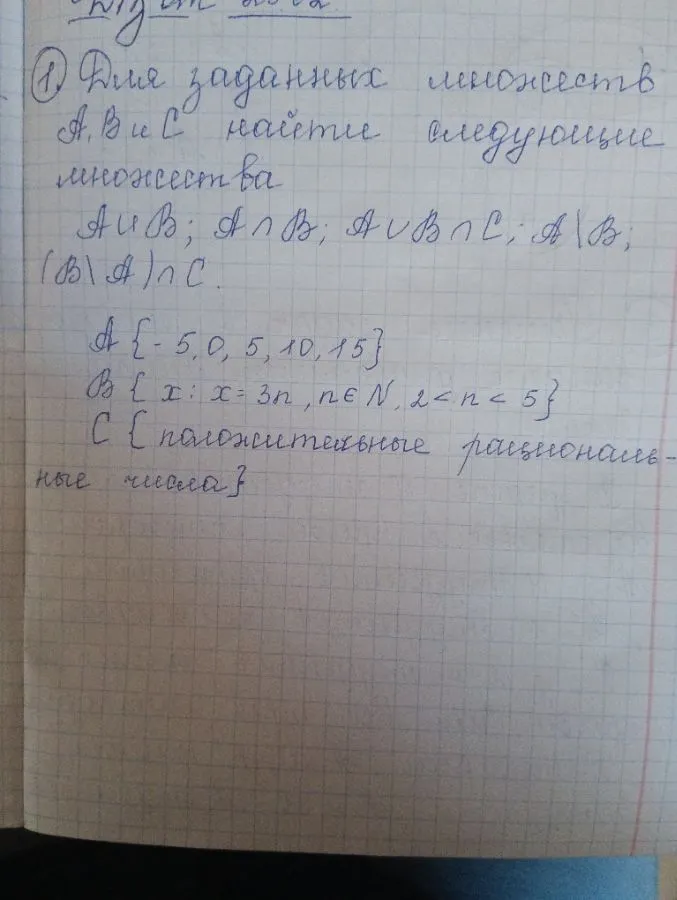 1. Для заданных множеств
A, B и C найти следующие
множества
A∪B; A∩B; A∪B∩C; A\B;
(B\A)∩C.
A {-5, 0, 5, 10, 15}
B { x: x=3n, n∈N, 2<n<5}
C { положительные рациональ-
ные числа}